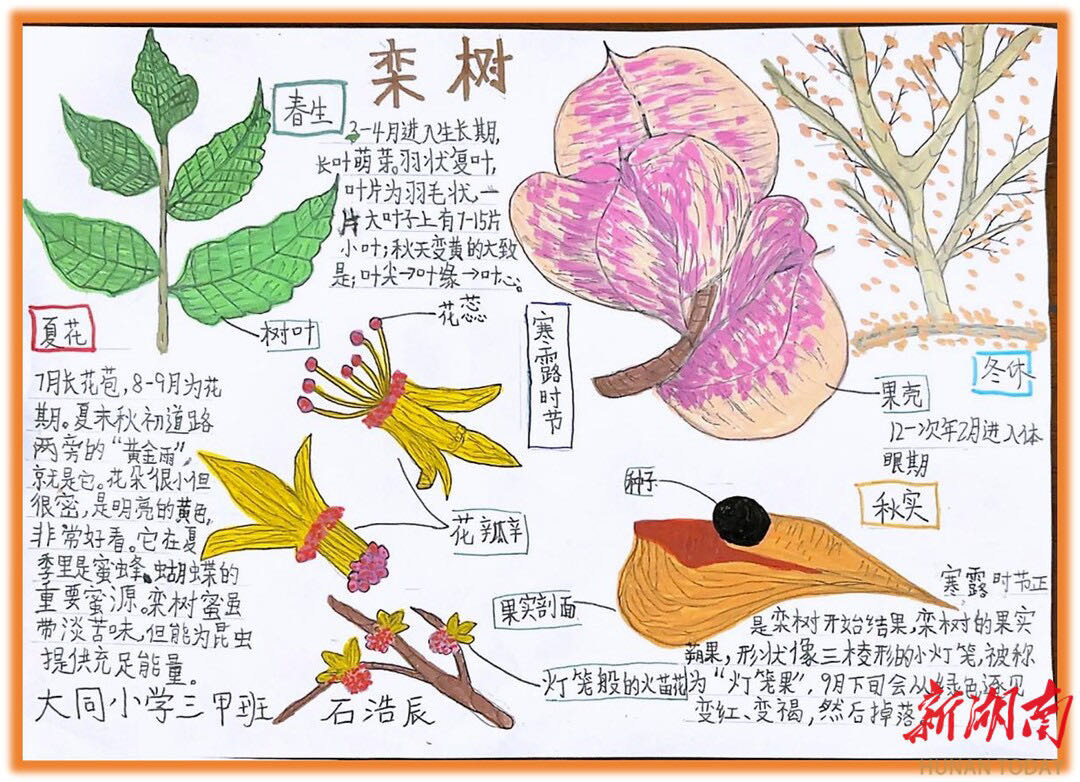 栾树
春生
3-4月进入生长期,
长叶萌芽。羽状复叶,
叶片为羽毛状,一
片大叶子上有7-15片
小叶;秋天变黄的大致
是:叶尖→叶缘→叶心。
树叶
夏花
7月长花苞,8-9月为花
期。夏末秋初道路
两旁的“黄金雨”,
就是它。花朵很小但
很密,是明亮的黄色,
非常好看。它在夏
季里是蜜蜂、蝴蝶的
重要蜜源。栾树蜜虽
带淡苦味,但能为昆虫
提供充足能量。
花蕊
花瓣
寒露时节
果壳
冬休
12-次年2月进入休
眠期
种子
秋实
果实剖面
寒露时节正
是栾树开始结果,栾树的果实
蒴果,形状像三棱形的小灯笼,被称
为“灯笼果”,9月下旬会从绿色逐见
变红、变褐,然后掉落
灯笼般的火苗花
大同小学三甲班 石浩辰
新湖南
HUNAN TODAY